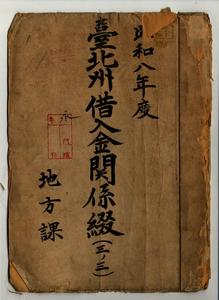 昭和八年度
臺北州借入金関係綴(三ノ三)
永
地方課